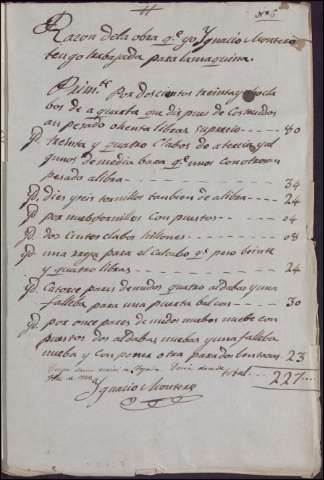 Nº 5
Razon dela obra q.e yo, Ygnacio Montero
tengo trabajada para lamaquina.
Prim.te Por doscientos treinta y ocho cla
bos de a quarta que dispues de Construidos
an pesado ochenta libras su precio 80
Yd. treinta y quatro Clabos de a tercia y al
gunos de media bara q.e unos con otros an
pesado alibra 34
Yd. diez y seis tornillos tanbien de alibra 24
Yd. por nuebe tornillos Con puestos 04
Yd. dos Cintos clabos 08
Yd. una para el q.e peso beinte
y quatro libras 24
Yd. Catorce pares de nudos quatro aldabas y una
falleba para una puerta balcon 30
Yd. por once pares de nudos nuebos nuebe con
puestos dos aldabas nuebas y una falleba
nueba y Con poner otra para dos bentanas 23
total 227
Ygnacio Montero